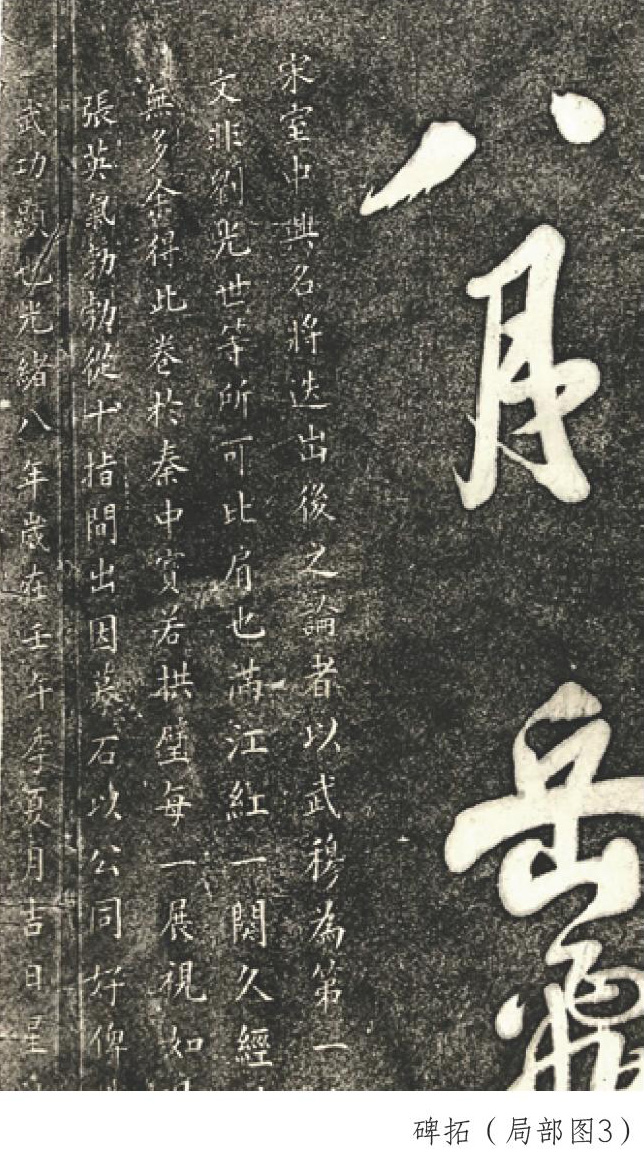 八月岳飛
宋室中興名將迭出後之論者以武穆為第一
文非劉光世等所可比肩也滿江紅一闋久經
無多余得此卷於秦中寶若拱璧每一展視如
張英氣勃勃從十指間出因摹石以公同好俾
武功顯也光緒八年歲在壬午季夏月吉日星
碑拓（局部图3）